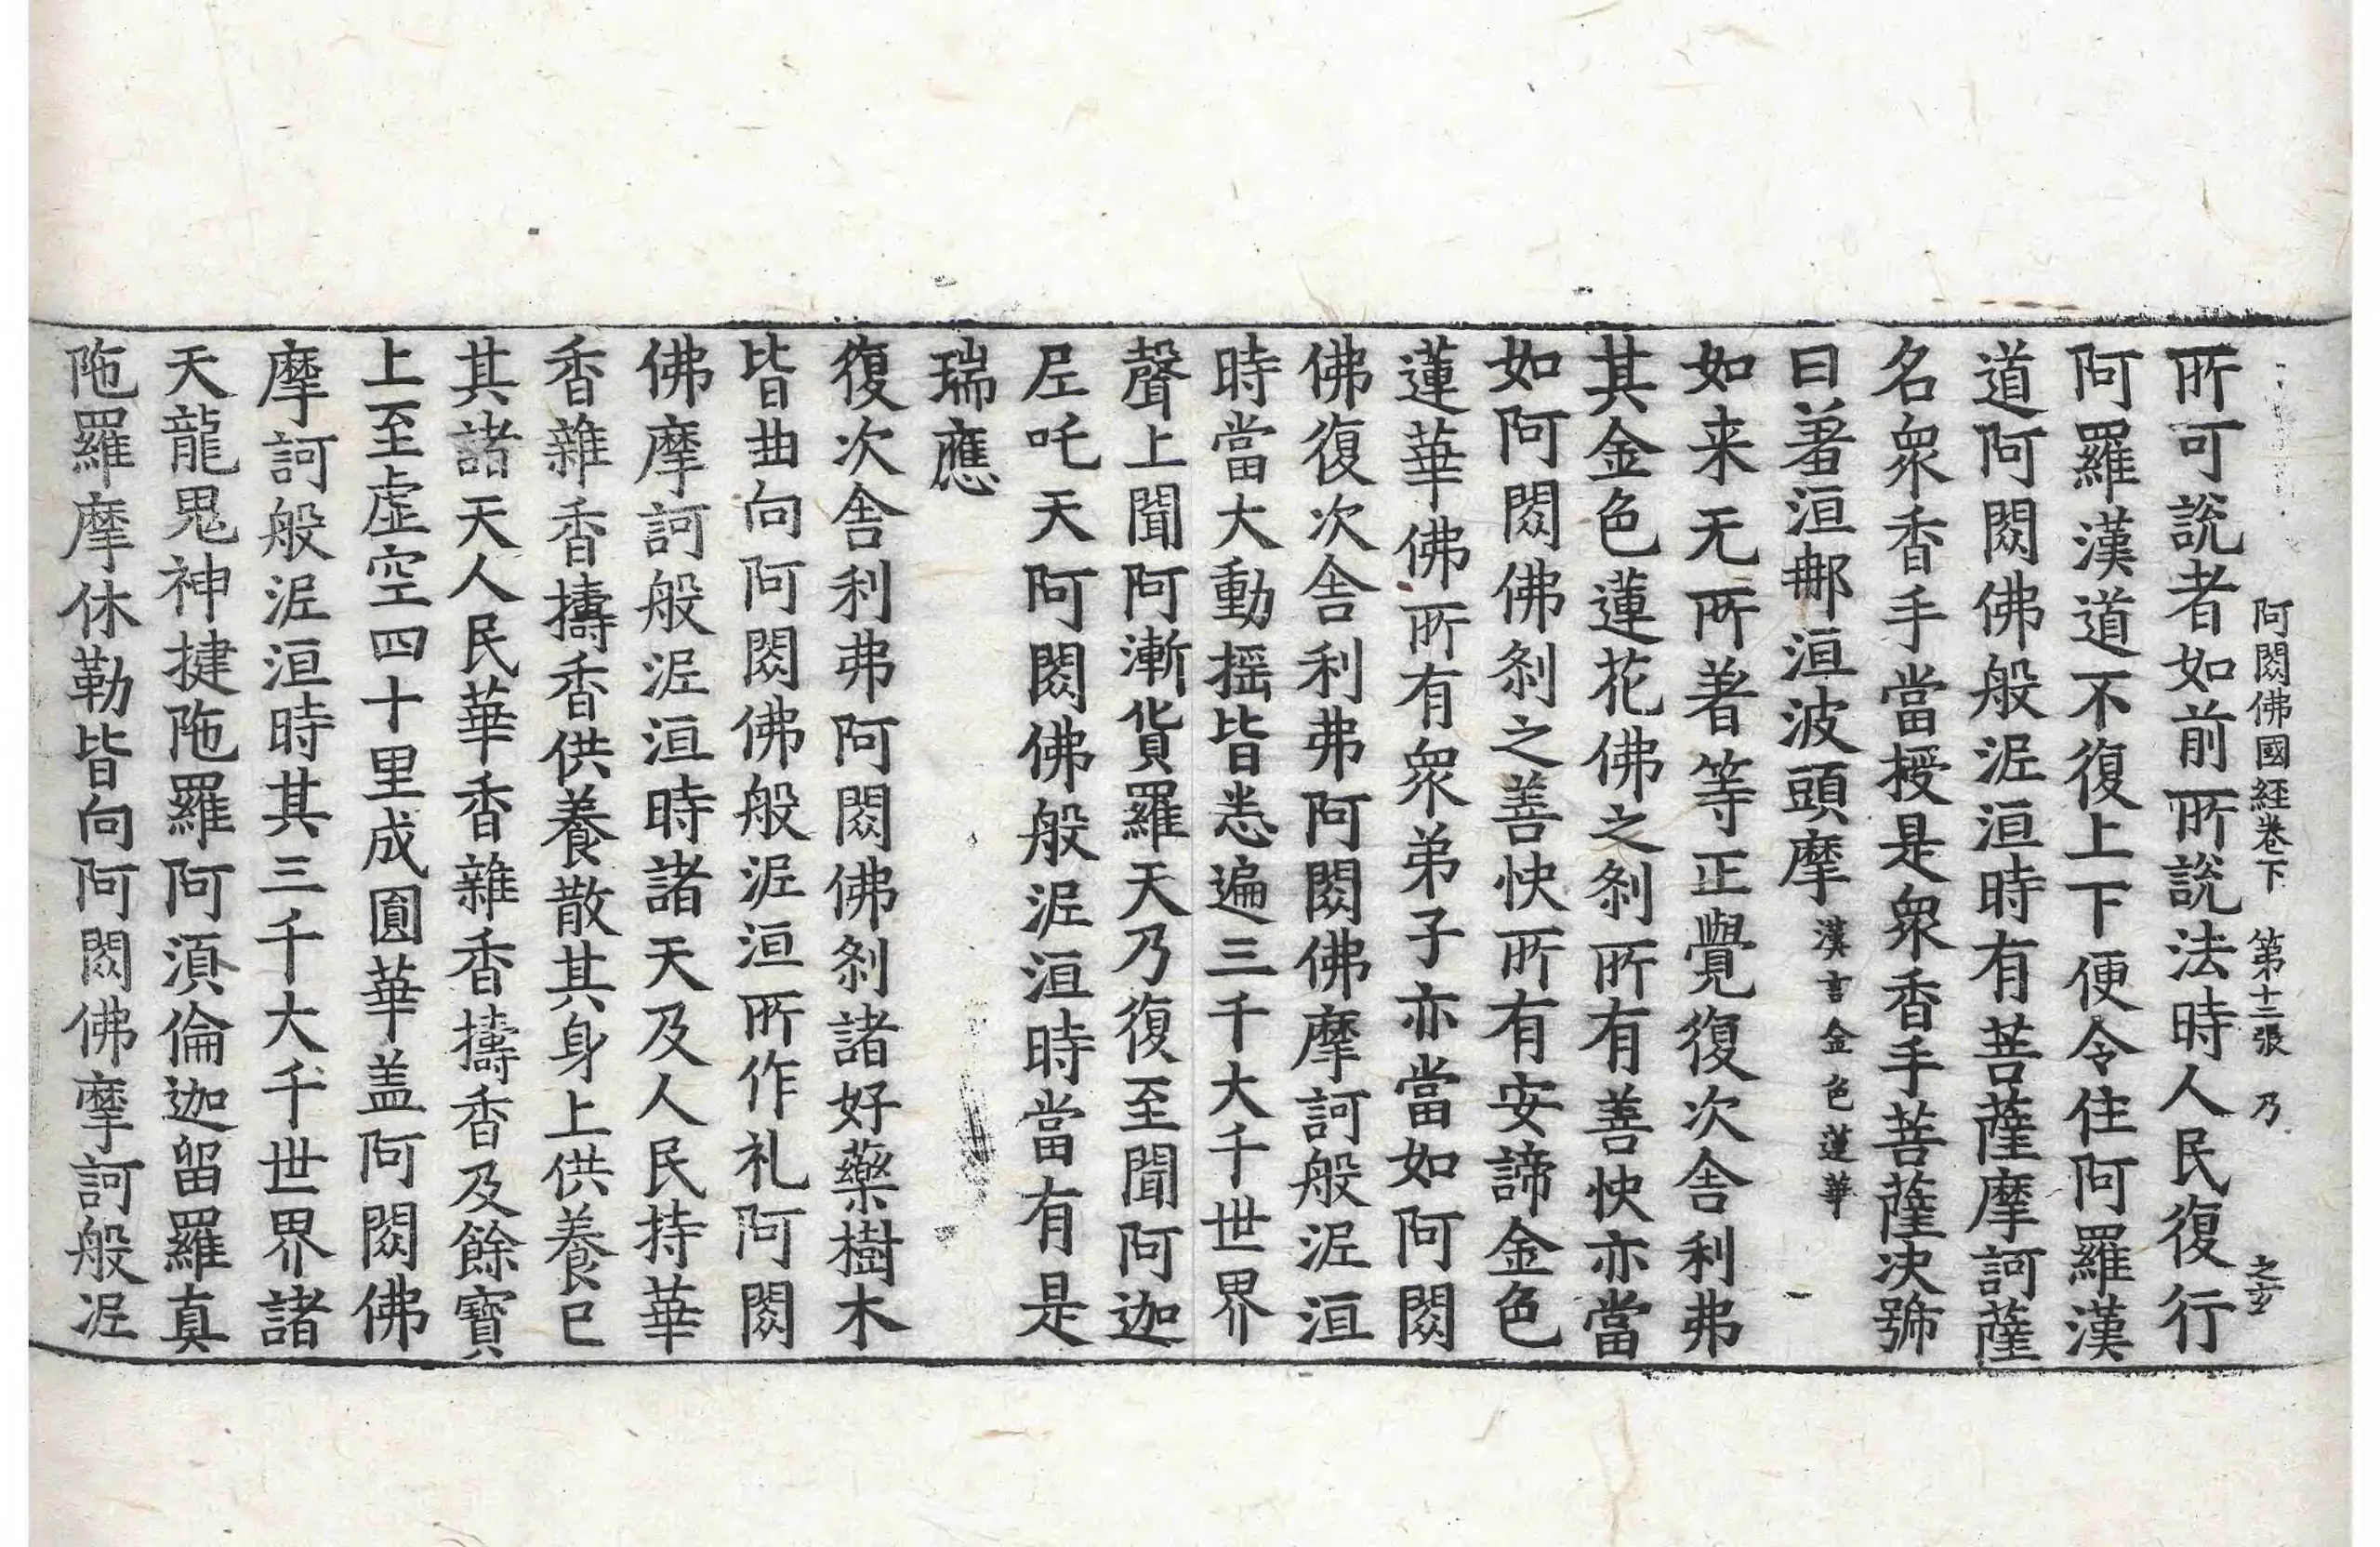 阿閦佛國経卷下 第十二張 乃
所可說者如前所說法時人民復行
阿羅漢道不復上下便令住阿羅漢
道阿閦佛般泥洹時有菩薩摩訶薩
名衆香手當授是衆香手菩薩決號
曰羞洹那洹波頭摩漢言金色蓮華
如来无所著等正覺復次舍利弗
其金色蓮花佛之刹所有善快亦當
如阿閦佛刹之善快所有安諦金色
蓮華佛所有衆弟子亦當如阿閦
佛復次舍利弗阿閦佛摩訶般泥洹
時當大動揺皆悉遍三千大千世界
聲上聞阿漸貨羅天乃復至聞阿迦
尼吒天阿閦佛般泥洹時當有是
瑞應
復次舍利弗阿閦佛刹諸好藥樹木
皆曲向阿閦佛般泥洹所作礼阿閦
佛摩訶般泥洹時諸天及人民持華
香雜香擣香供養散其身上供養已
其諸天人民華香雜香擣香及餘寶
上至虛空四十里成圓華盖阿閦佛
摩訶般泥洹時其三千大千世界諸
天龍鬼神揵陁羅阿湏倫迦留羅真
陁羅摩休勒皆向阿閦佛摩訶般泥